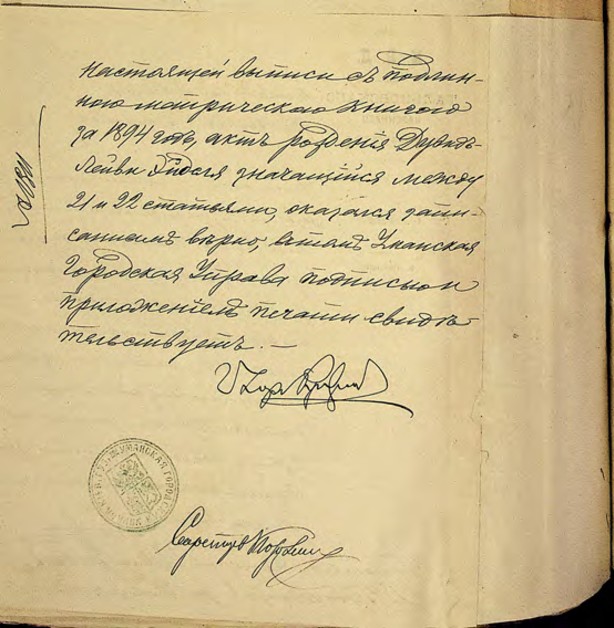 Настоящей выписи съ подлин-
ною метрическою книгою
за 1894 годъ, актъ рожденія Дувидъ-
Лейви значащійся между
21 и 22 статьями, оказался запи-
саннымъ вѣрно, въ томъ Уманская
Городская Управа подписью и
приложеніемъ печати свидѣ-
тельствуетъ. —
УМАНСКАЯ ГОРОДСКАЯ